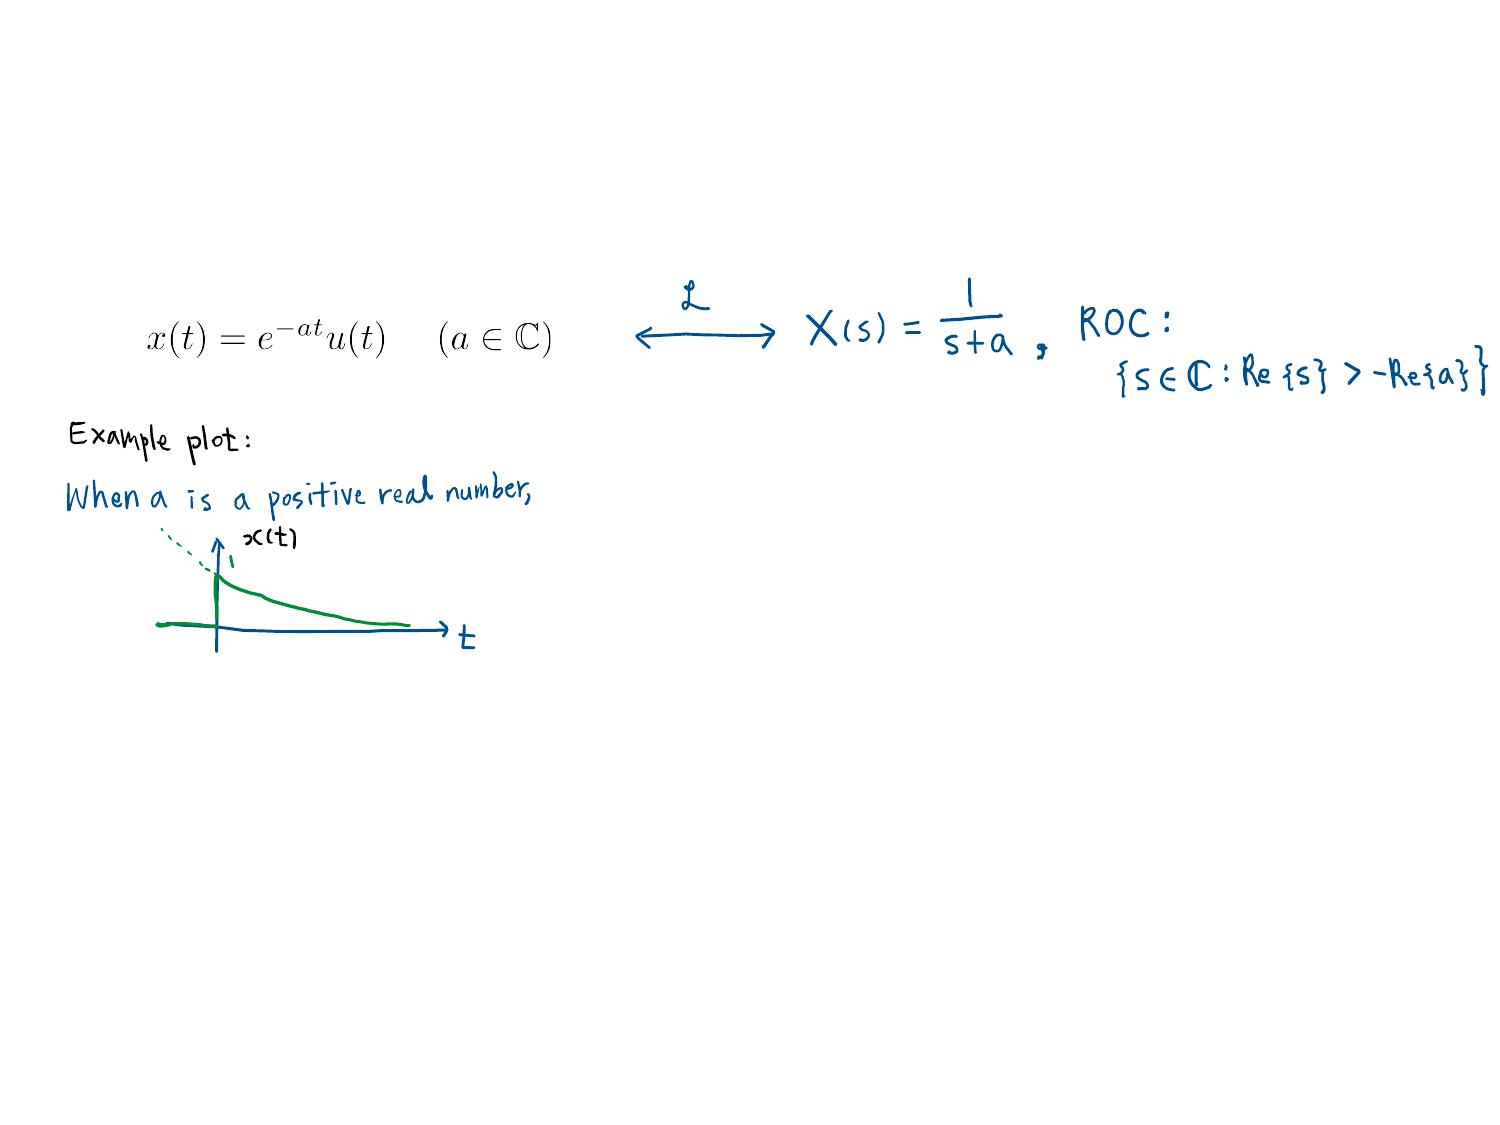 x(t) = e^{-at}u(t) (a ∈ ℂ) ℒ ⟷ X(s) = 1/(s+a), ROC:
{s ∈ ℂ : Re{s} > -Re{a}}
Example plot:
When a is a positive real number,
x(t)
1
t